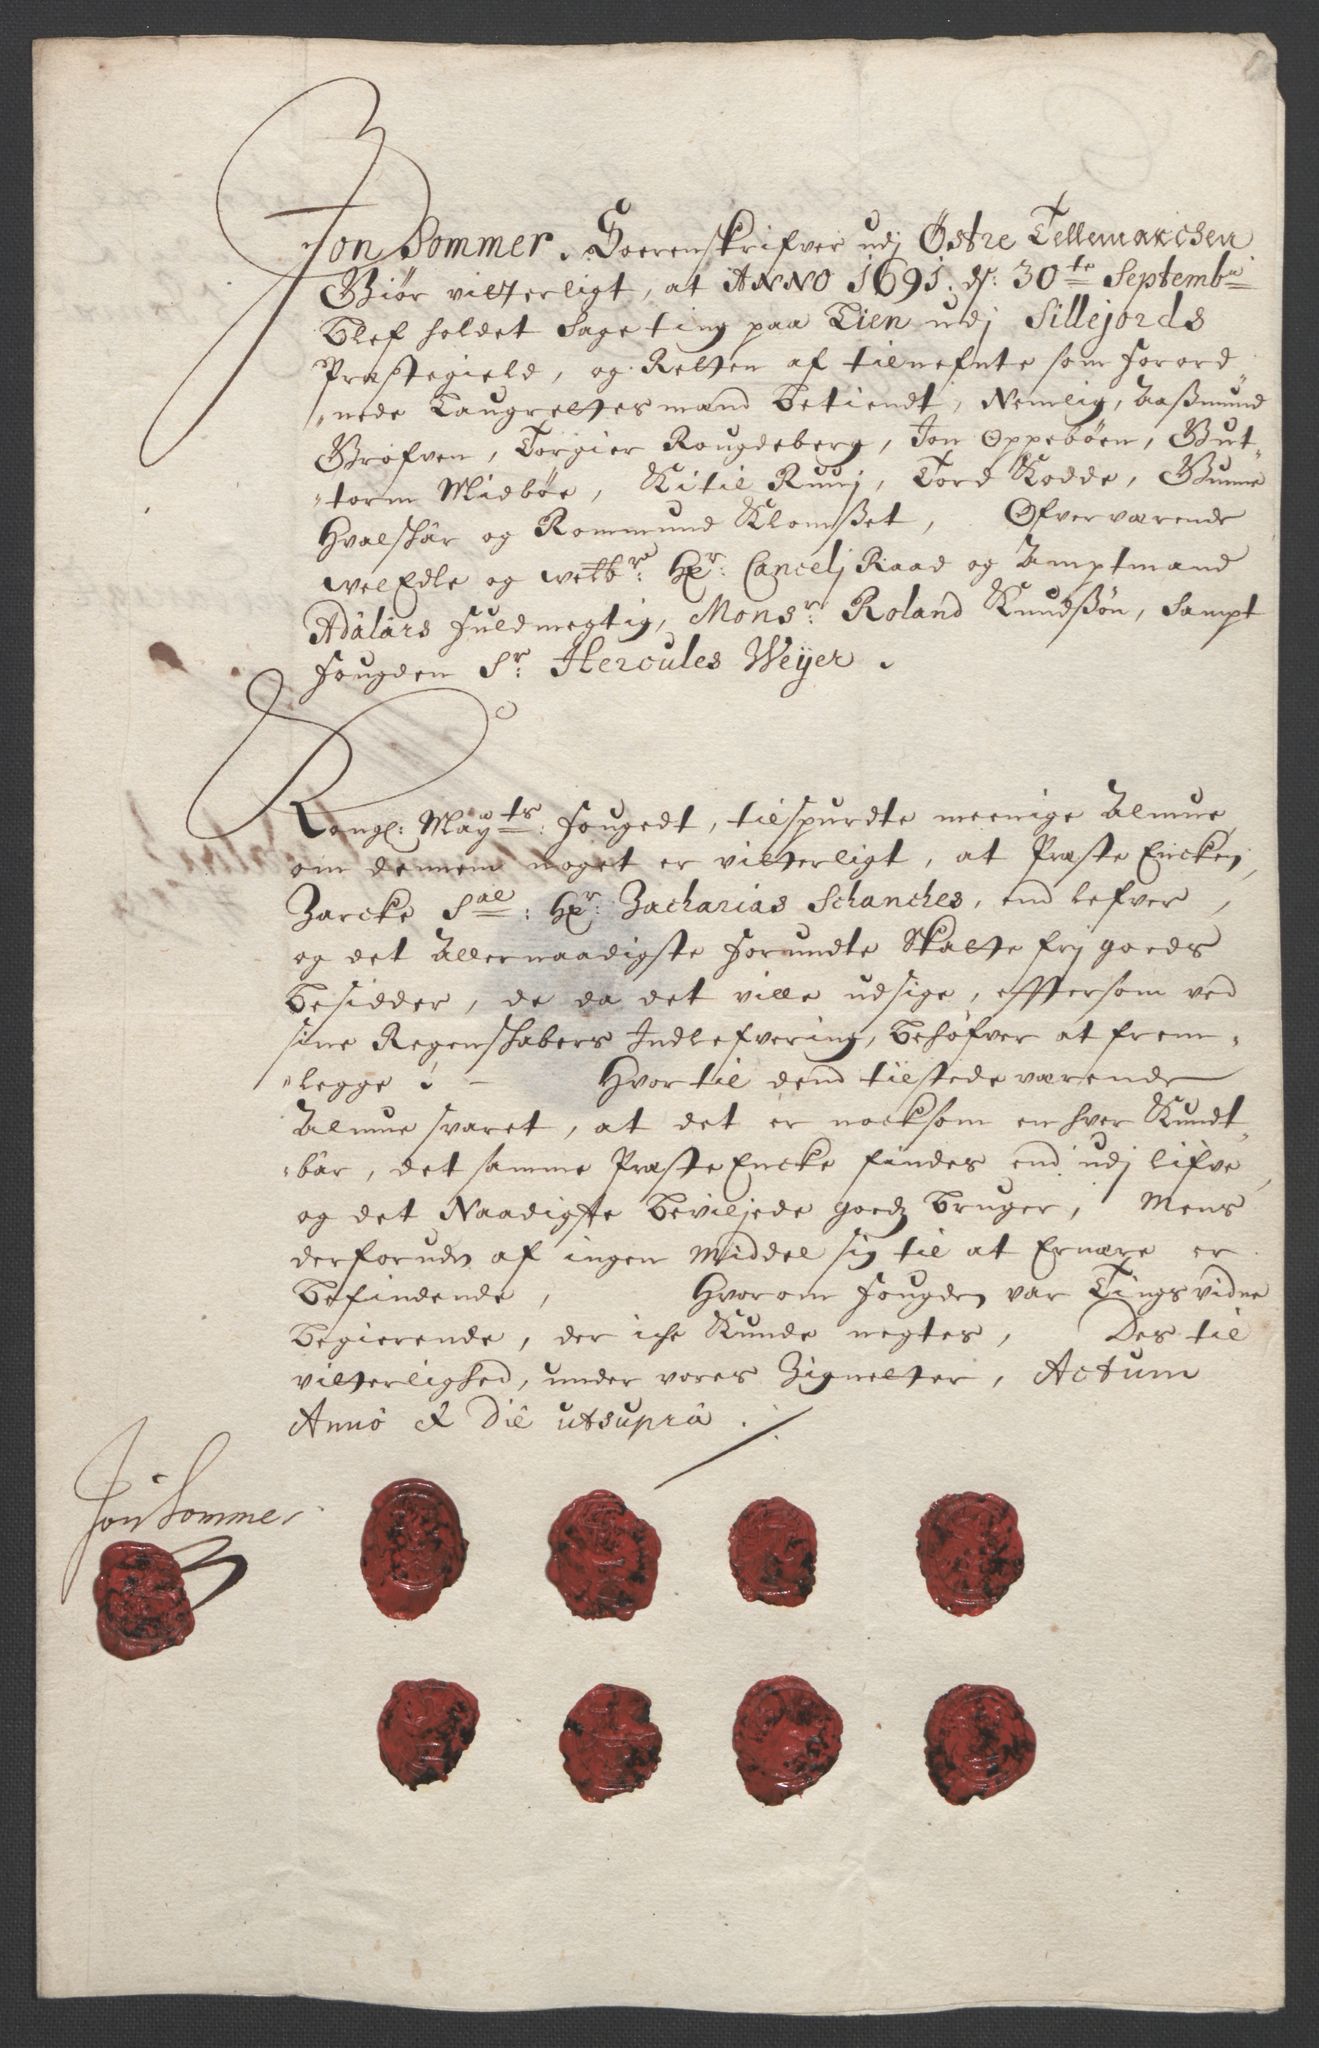 Jon Sommer, Soerenskrifver udj Østre Tellemarchen
Giør vitterligt, at ANNO 1691. d. 30te Septembr
blef holdet Sage ting paa Tien udj Sillejords
Præstegield, og Retten af tilnefnte som forord„
„nede Laugrettesmænd betiendt, Nemlig, Aaßmund
Grofven, Torgier Rougdeberg, Jon Oppebøen, Gut„
„torm Midbøe, Kitil Ruuj, Tord Kodde, Gunne
Hvalskår og Rommund Klomset, Ofverværende
WelEdle og Welbr: Hr: Cancelj Raad og Amptmand
Adelårs fuldmegtig, Monsr: Roland Knudßøn, Sampt
fougden Sr: Hercules Weyer.
Kongl: Mayts: fougedt, tilspurdte meenige Almue
om dennem noget er vitterligt, at Præste Encken
Zarcke Sal: Hr: Zacharias Schanches, end lefver,
og det Allernaadigste forundte Skatte frj goeds
besidder, de da det ville udsige, efftersom ved
sine Regenskabers Indlefvering, behøfver at frem„
„legge: - Hvortil dend tilstedeværende
Almue svaret, at det er nocksom enhver Kundt„
„bår, det samme Præste Encke findes end udj lifve,
og det Naadigste beviljede goedz bruger, Mens
derforuden af ingen Middel sig til at Ernære er
befindende, Hvorom fougden var Tingsvidne
begierende, der iche Kunde negtes, Des til
vitterlighed, under vores Zignetter, Actum
Anno & Die utsuprà.
Jon Sommer